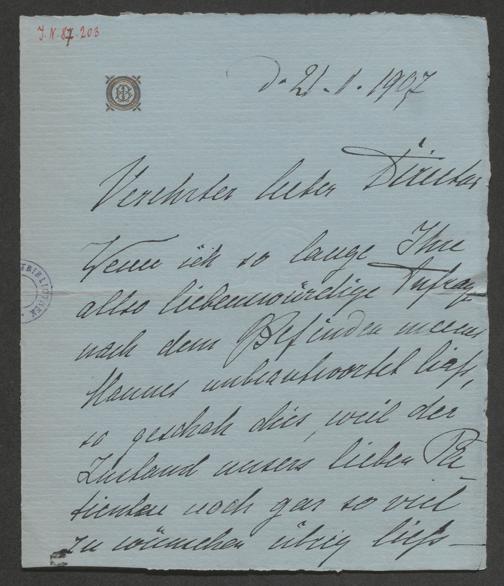 J.N. 87.203
d. 21.1.1907
Verehrter lieber Director
Wenn ich so lange Ihre
allso liebenswürdige Anfrage
nach dem Befinden meines
Mannes unbeantwortet liess,
so geschah dies, weil der
Zustand unsers lieben Pa-
tienten noch gar so viel
zu wünschen übrig liess –